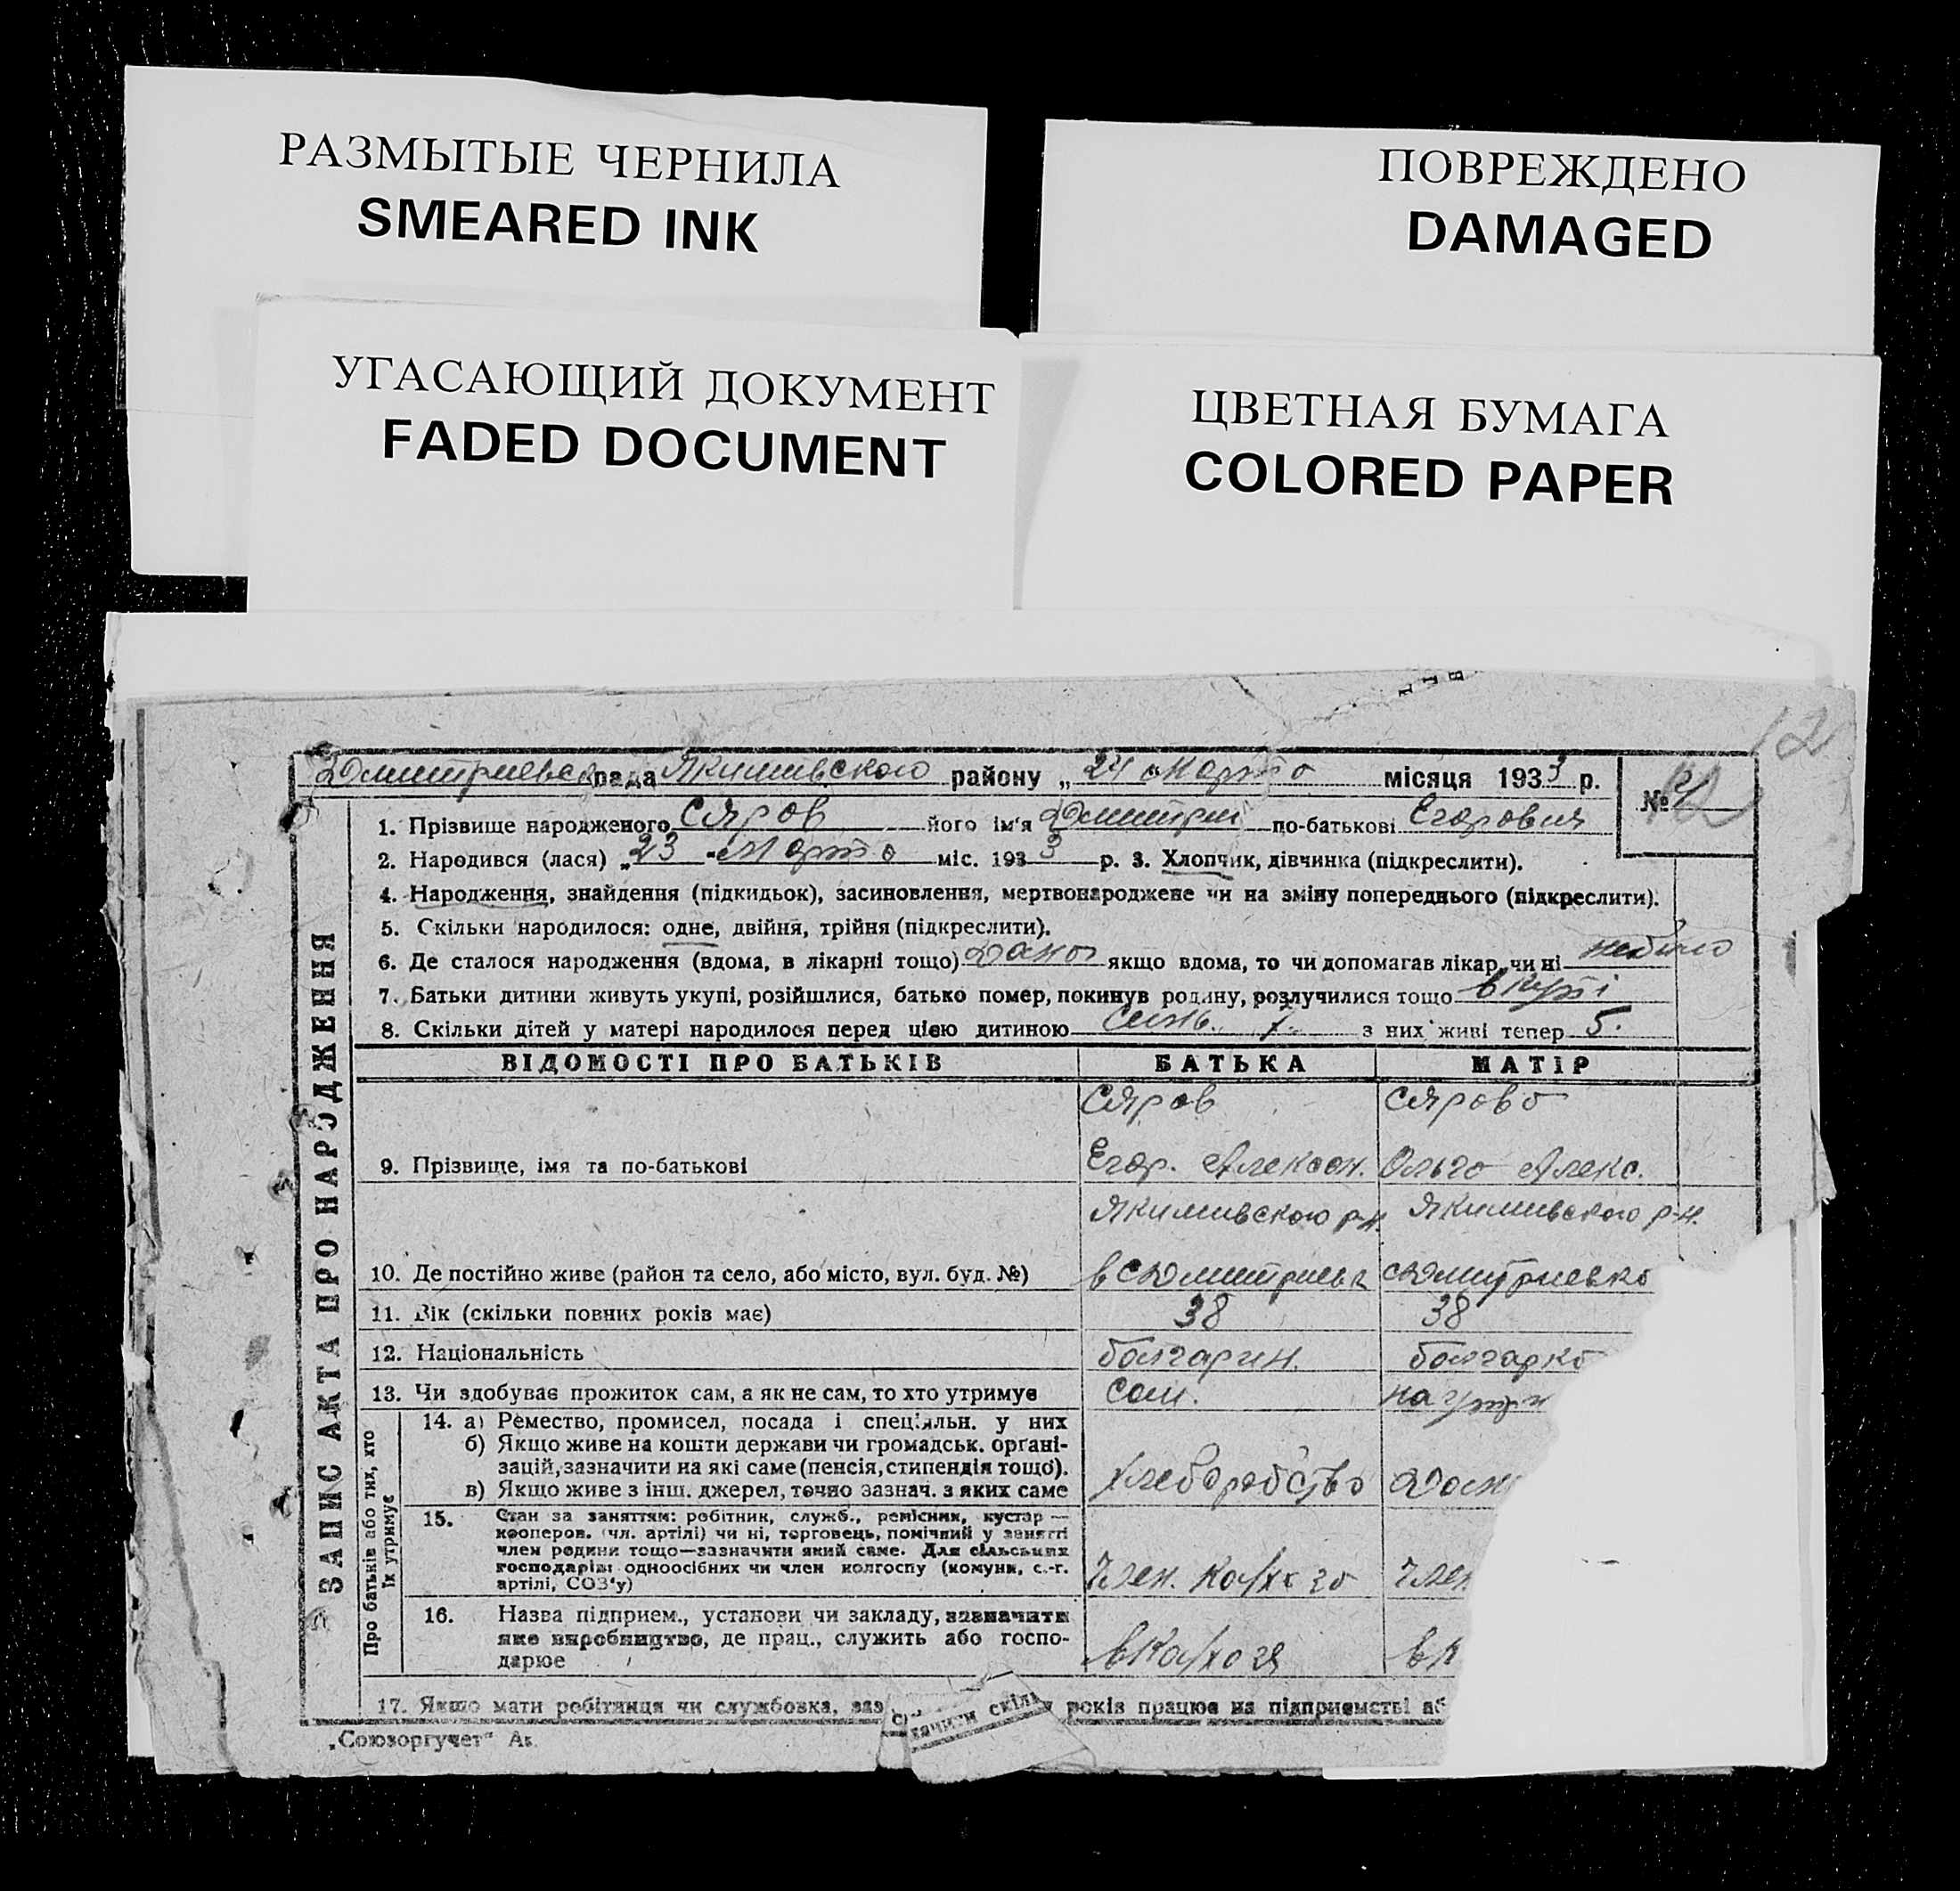 РАЗМЫТЫЕ ЧЕРНИЛА
SMEARED INK
ПОВРЕЖДЕНО
DAMAGED
УГАСАЮЩИЙ ДОКУМЕНТ
FADED DOCUMENT
ЦВЕТНАЯ БУМАГА
COLORED PAPER
12
рада Якимивского району „ 24 марта місяця 1933 р.
№
1. Прізвище народженого Сяров його ім'я Дмитрии по-батькові Егорович
2. Народився (лася) „ 23 " марта міс. 1933 р. 3. Хлопчик, дівчинка (підкреслити).
4. Народження, знайдення (підкидьок), засиновлення, мертвонароджене чи на зміну попереднього (підкреслити).
5. Скільки народилося: одне, двійня, трійня (підкреслити).
6. Де сталося народження (вдома, в лікарні тощо) якщо вдома, то чи допомагав лікар, чи ні
7. Батьки дитини живуть укупі, розійшлися, батько помер, покинув родину, розлучилися тощо вкупі
8. Скільки дітей у матері народилося перед цією дитиною семь. 7. з них живі тепер 5.
ЗАПИС АКТА ПРО НАРОДЖЕННЯ
ВІДОМОСТІ ПРО БАТЬКІВ БАТЬКА МАТІР
Сяров Сярова
9. Прізвище, імя та по-батькові Егор. Алексан. Ольга Алекс.
Якимивского р-н. Якимивского р-н.
10. Де постійно живе (район та село, або місто, вул. буд. №)
11. Вік (скільки повних років має) 38 38
12. Національність болгарин. болгарка
13. Чи здобуває прожиток сам, а як не сам, то хто утримує сам.
Про батьків або тих, хто
їх утримує
14. а) Ремество, промисел, посада і спеціяльн. у них
б) Якщо живе на кошти держави чи громадськ. органі-
зацій, зазначити на які саме (пенсія, стипендія тощо).
в) Якщо живе з інш. джерел, точно зазнач. з яких саме хлеборобство
15. Стан за заняттям: робітник, служб., ремісник, кустар —
кооперов. (чл. артілі) чи ні, торговець, помічний у занятті
член родини тощо—зазначити який саме. Для сільських
господарів: одноосібних чи член колгоспу (комуни, с.-г.
артілі, СОЗ'у) член. колхоза член
16. Назва підприєм., установи чи закладу, зазначити
яке виробництво, де прац., служить або госпо-
дарює в к
17. Якщо мати робітниця чи службовка, заз
зачити скіль
років працює на підприємстві аб
„Союзоргучет"